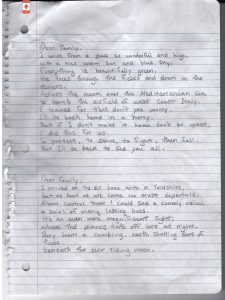 Dear Family,
I write from a place so wonderful and high,
with a nice warm sun and blue sky.
Everything is beautifully green,
the trees through the fields and down in the
Across the ocean over the Mediterranean Sea,
to bomb the airfield of west coast Italy,
I trained for this don't you worry.
I'll be back home in a hurry.
But if I don't make it home don't be upset,
I did this for us.
To protect, to serve, to fight, then fall,
But I'll be back to see you all.
Dear Family,
I arrived at the air base with in Yorkshire,
but as soon as we came we must departure.
Above control tower I could see a comely view,
a swirl of many lasting hues.
It's an even more magnificent sight,
when the planes take off late at night.
They have a rumbling, earth shaking sort of
tune,
beneath the ever rising moon.